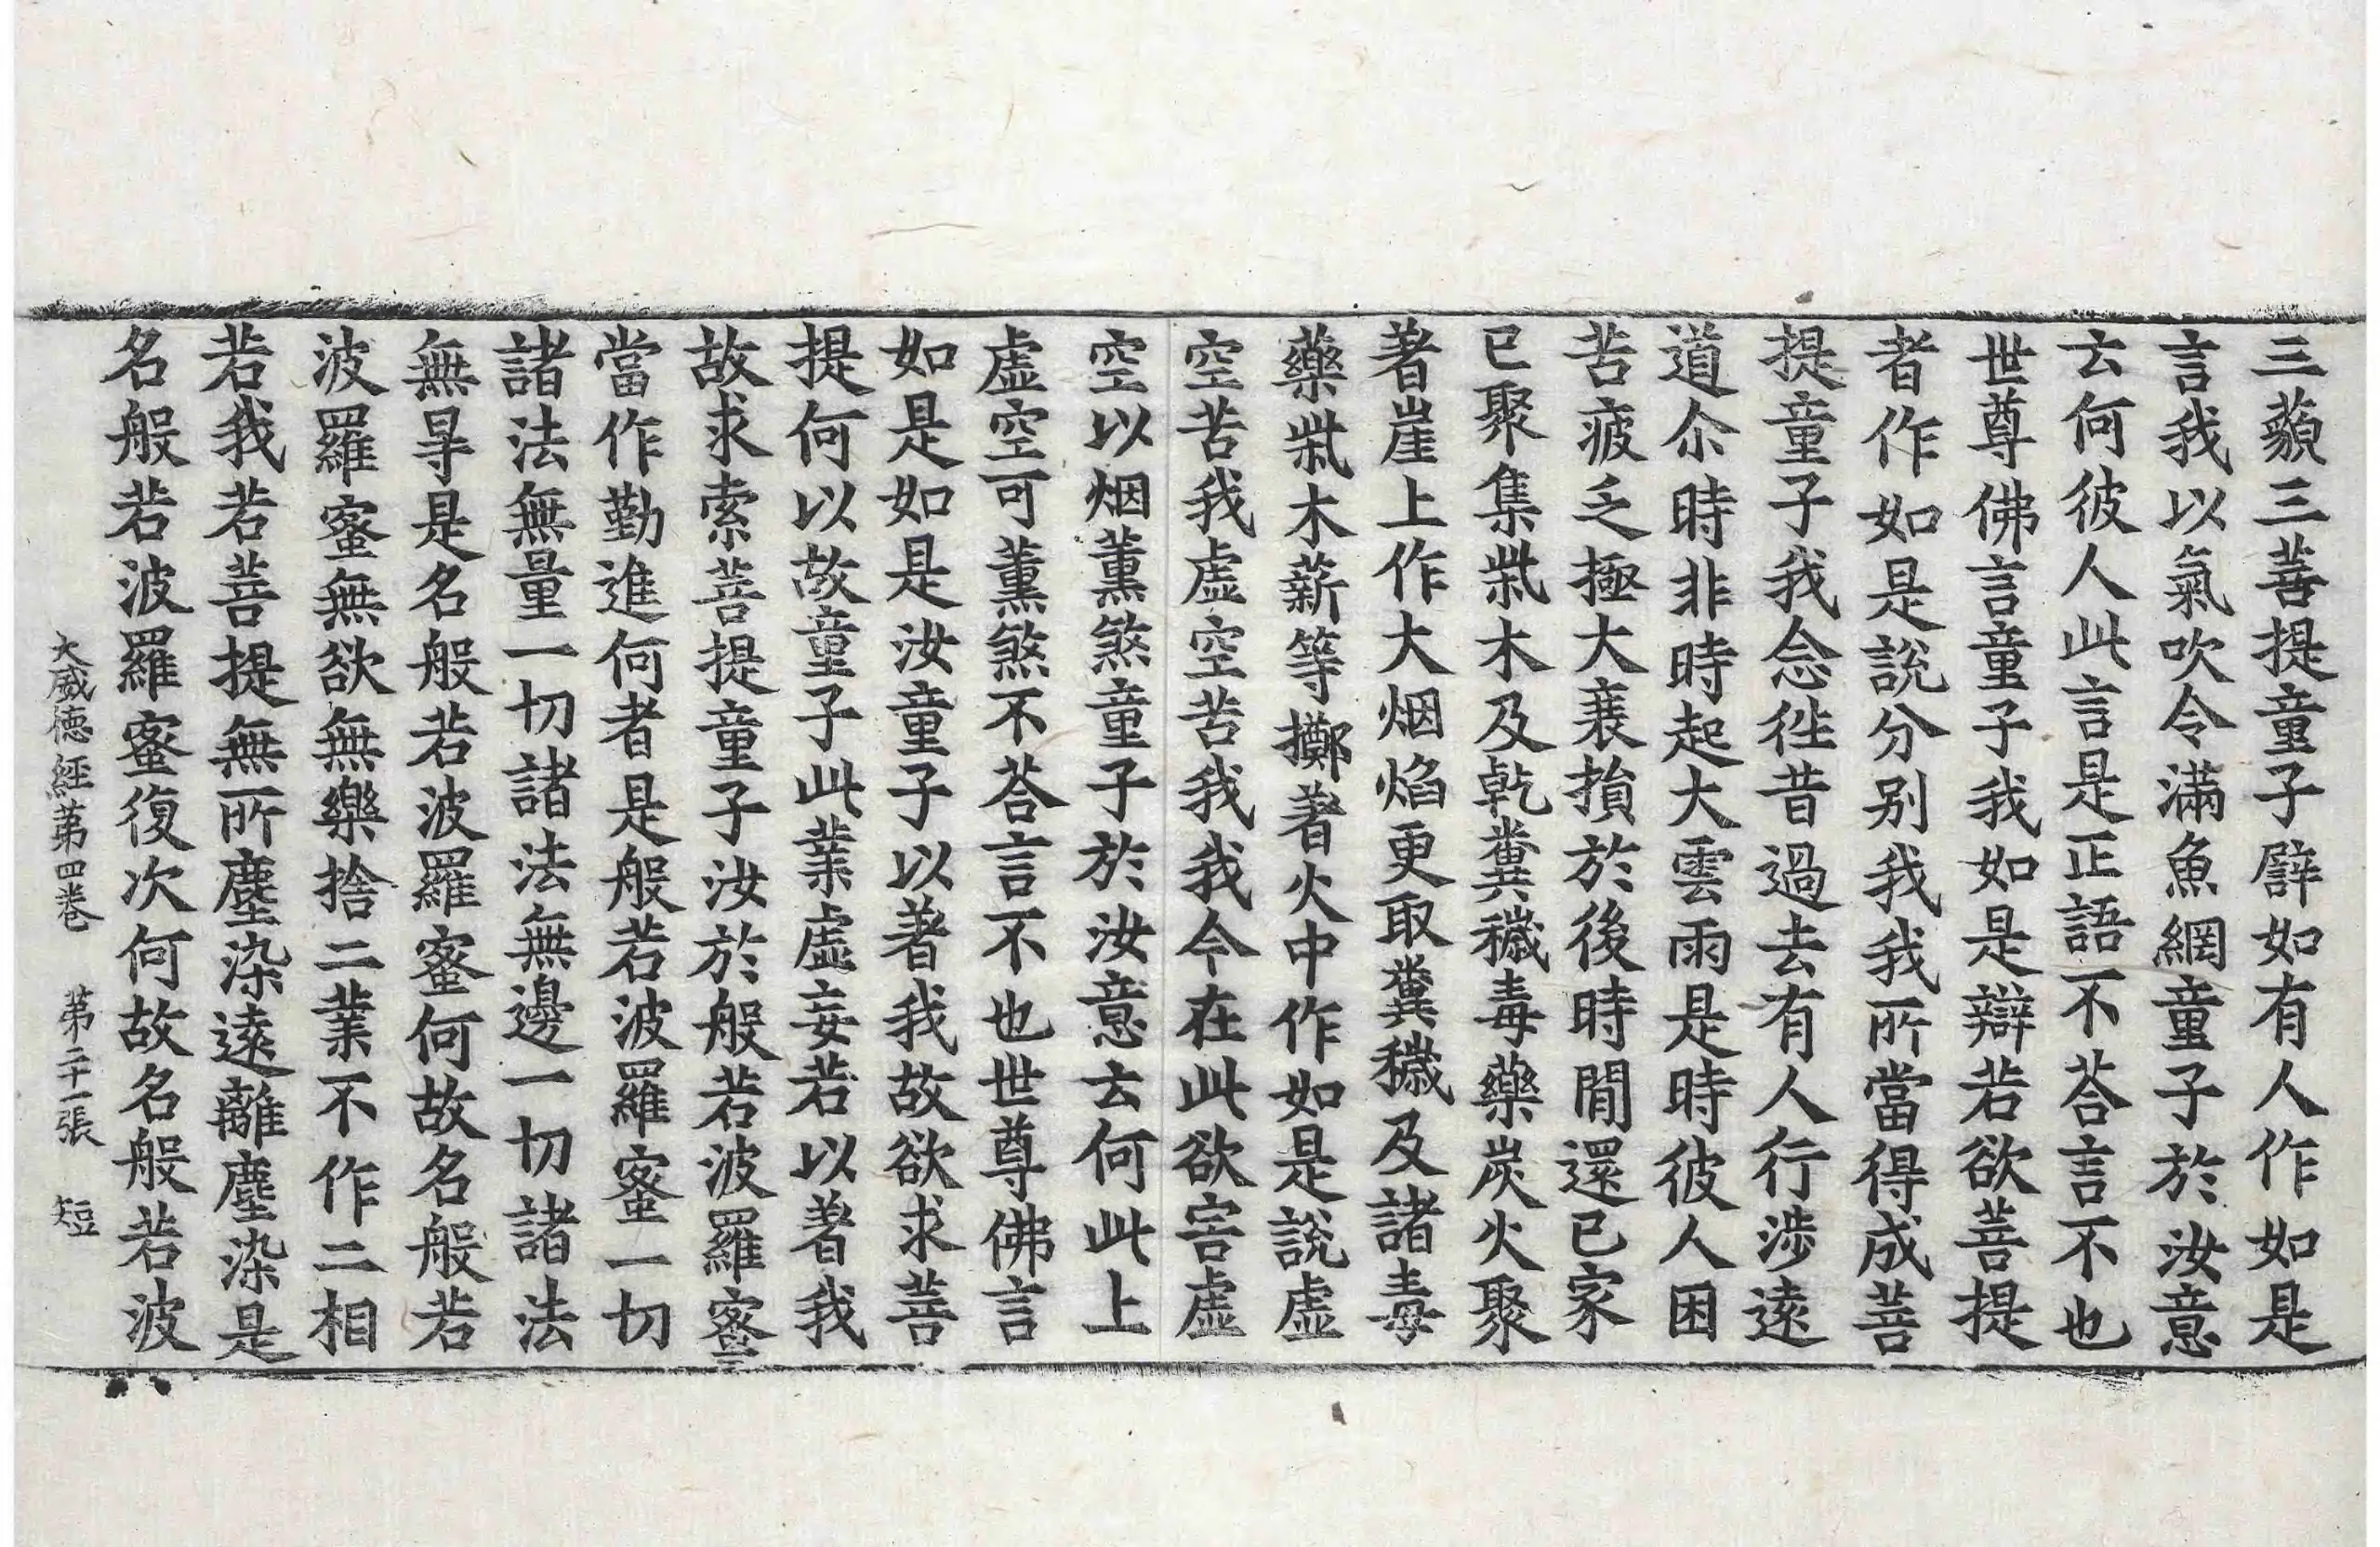 三藐三菩提童子譬如有人作如是
言我以氣吹令滿魚網童子於汝意
云何彼人此言是正語不荅言不也
世尊佛言童子我如是辯若欲菩提
者作如是說分别我我所當得成菩
提童子我念徃昔過去有人行涉逺
道尒時非時起大雲雨是時彼人困
苦疲乏極大衰損於後時閒還已家
已聚集柴木及乾糞穢毒藥炭火聚
著崖上作大烟焰更取糞穢及諸毒
藥柴木薪等擲著火中作如是說虛
空苦我虛空苦我我今在此欲害虛
空以烟薫煞童子於汝意云何此上
虛空可薫煞不荅言不也世尊佛言
如是如是汝童子以著我故欲求菩
提何以故童子此業虛妄若以著我
故求索菩提童子汝於般若波羅蜜
當作勤進何者是般若波羅蜜一切
諸法無量一切諸法無邊一切諸法
無㝵是名般若波羅蜜何故名般若
波羅蜜無欲無樂捨二業不作二相
若我若菩提無所塵染逺離塵染是
名般若波羅蜜復次何故名般若波
大威德經第四卷 第二十一張 短